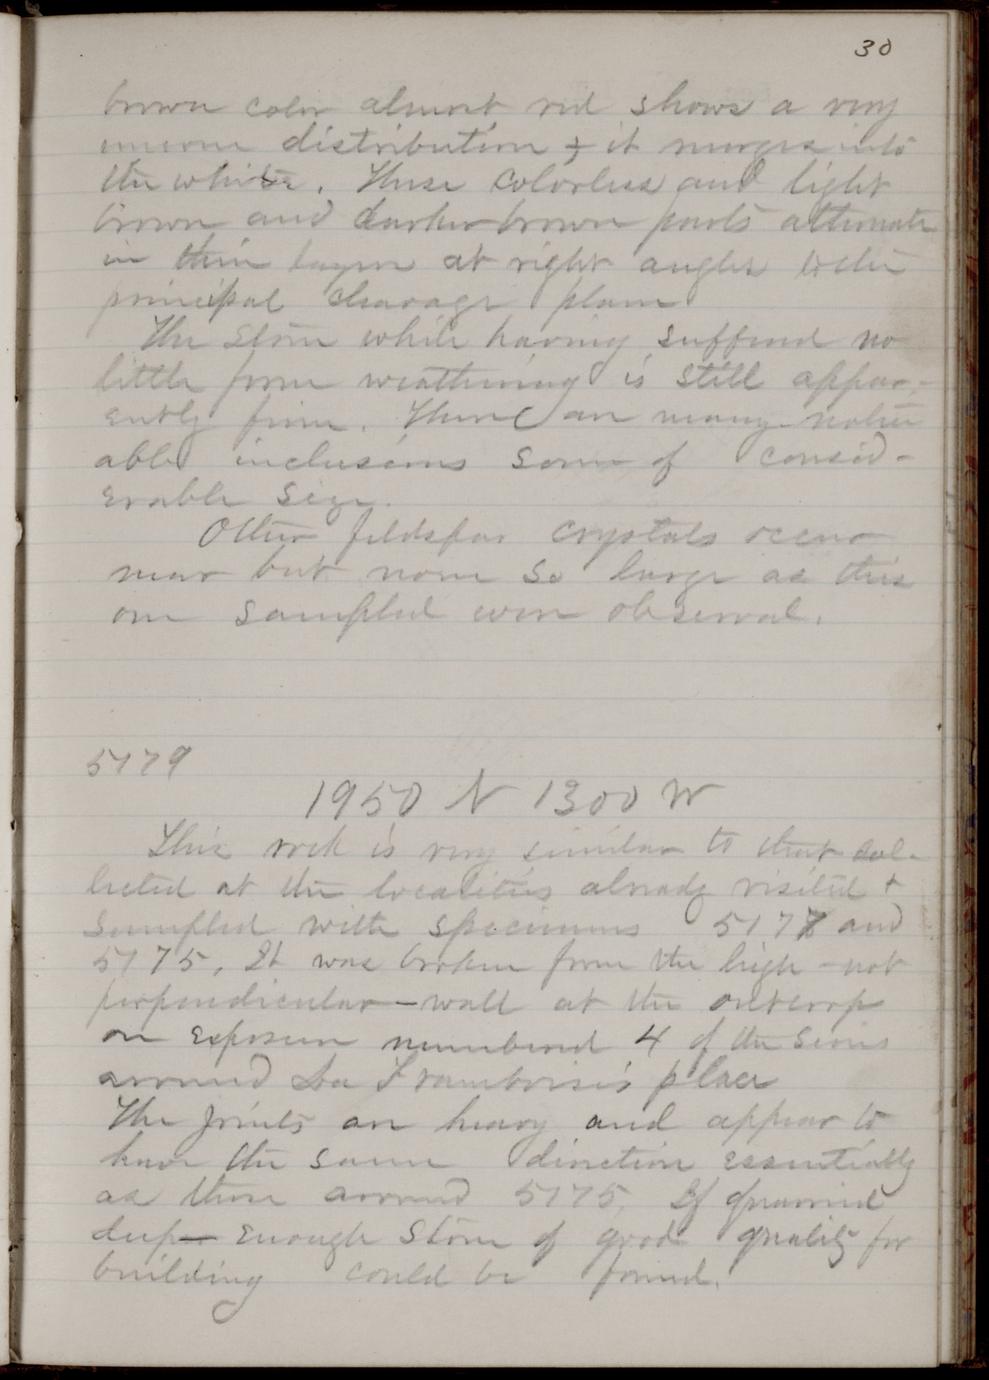 30
brown color almost red shows a very
uneven distribution & it merges into
the white. These colorless and light
brown and darker brown parts alternate
in thin layers at right angles to the
principal cleavage plane
The stone while having suffered no
little from weathering is still appar-
ently firm. There are many notice
able inclusions some of consid-
erable size.
Other feldspar crystals occur
near but none so large as this
one sampled were observed.
5179
1950 N 1300 W
This rock is very similar to that col-
lected at the localities already visited +
sampled with specimens 5178 and
5175. It was broken from the high - not
perpendicular - wall at the outcrop
or exposure numbered 4 of the series
around La Framboise's place
The joints are heavy and appear to
have the same direction essentially
as those around 5175. If quarried
deep enough stone of good quality for
building could be found.